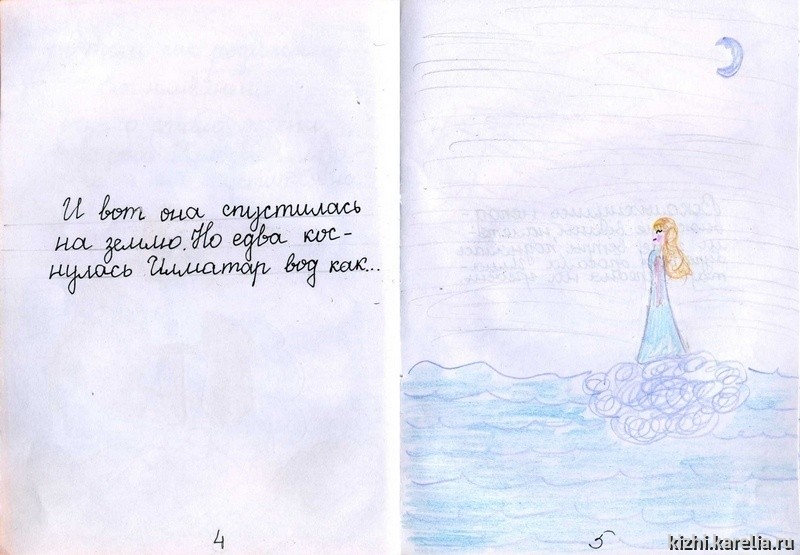 И вот она спустилась
на землю. Но едва кос-
нулась Илматар вод как...
4
5
kizhi.karelia.ru